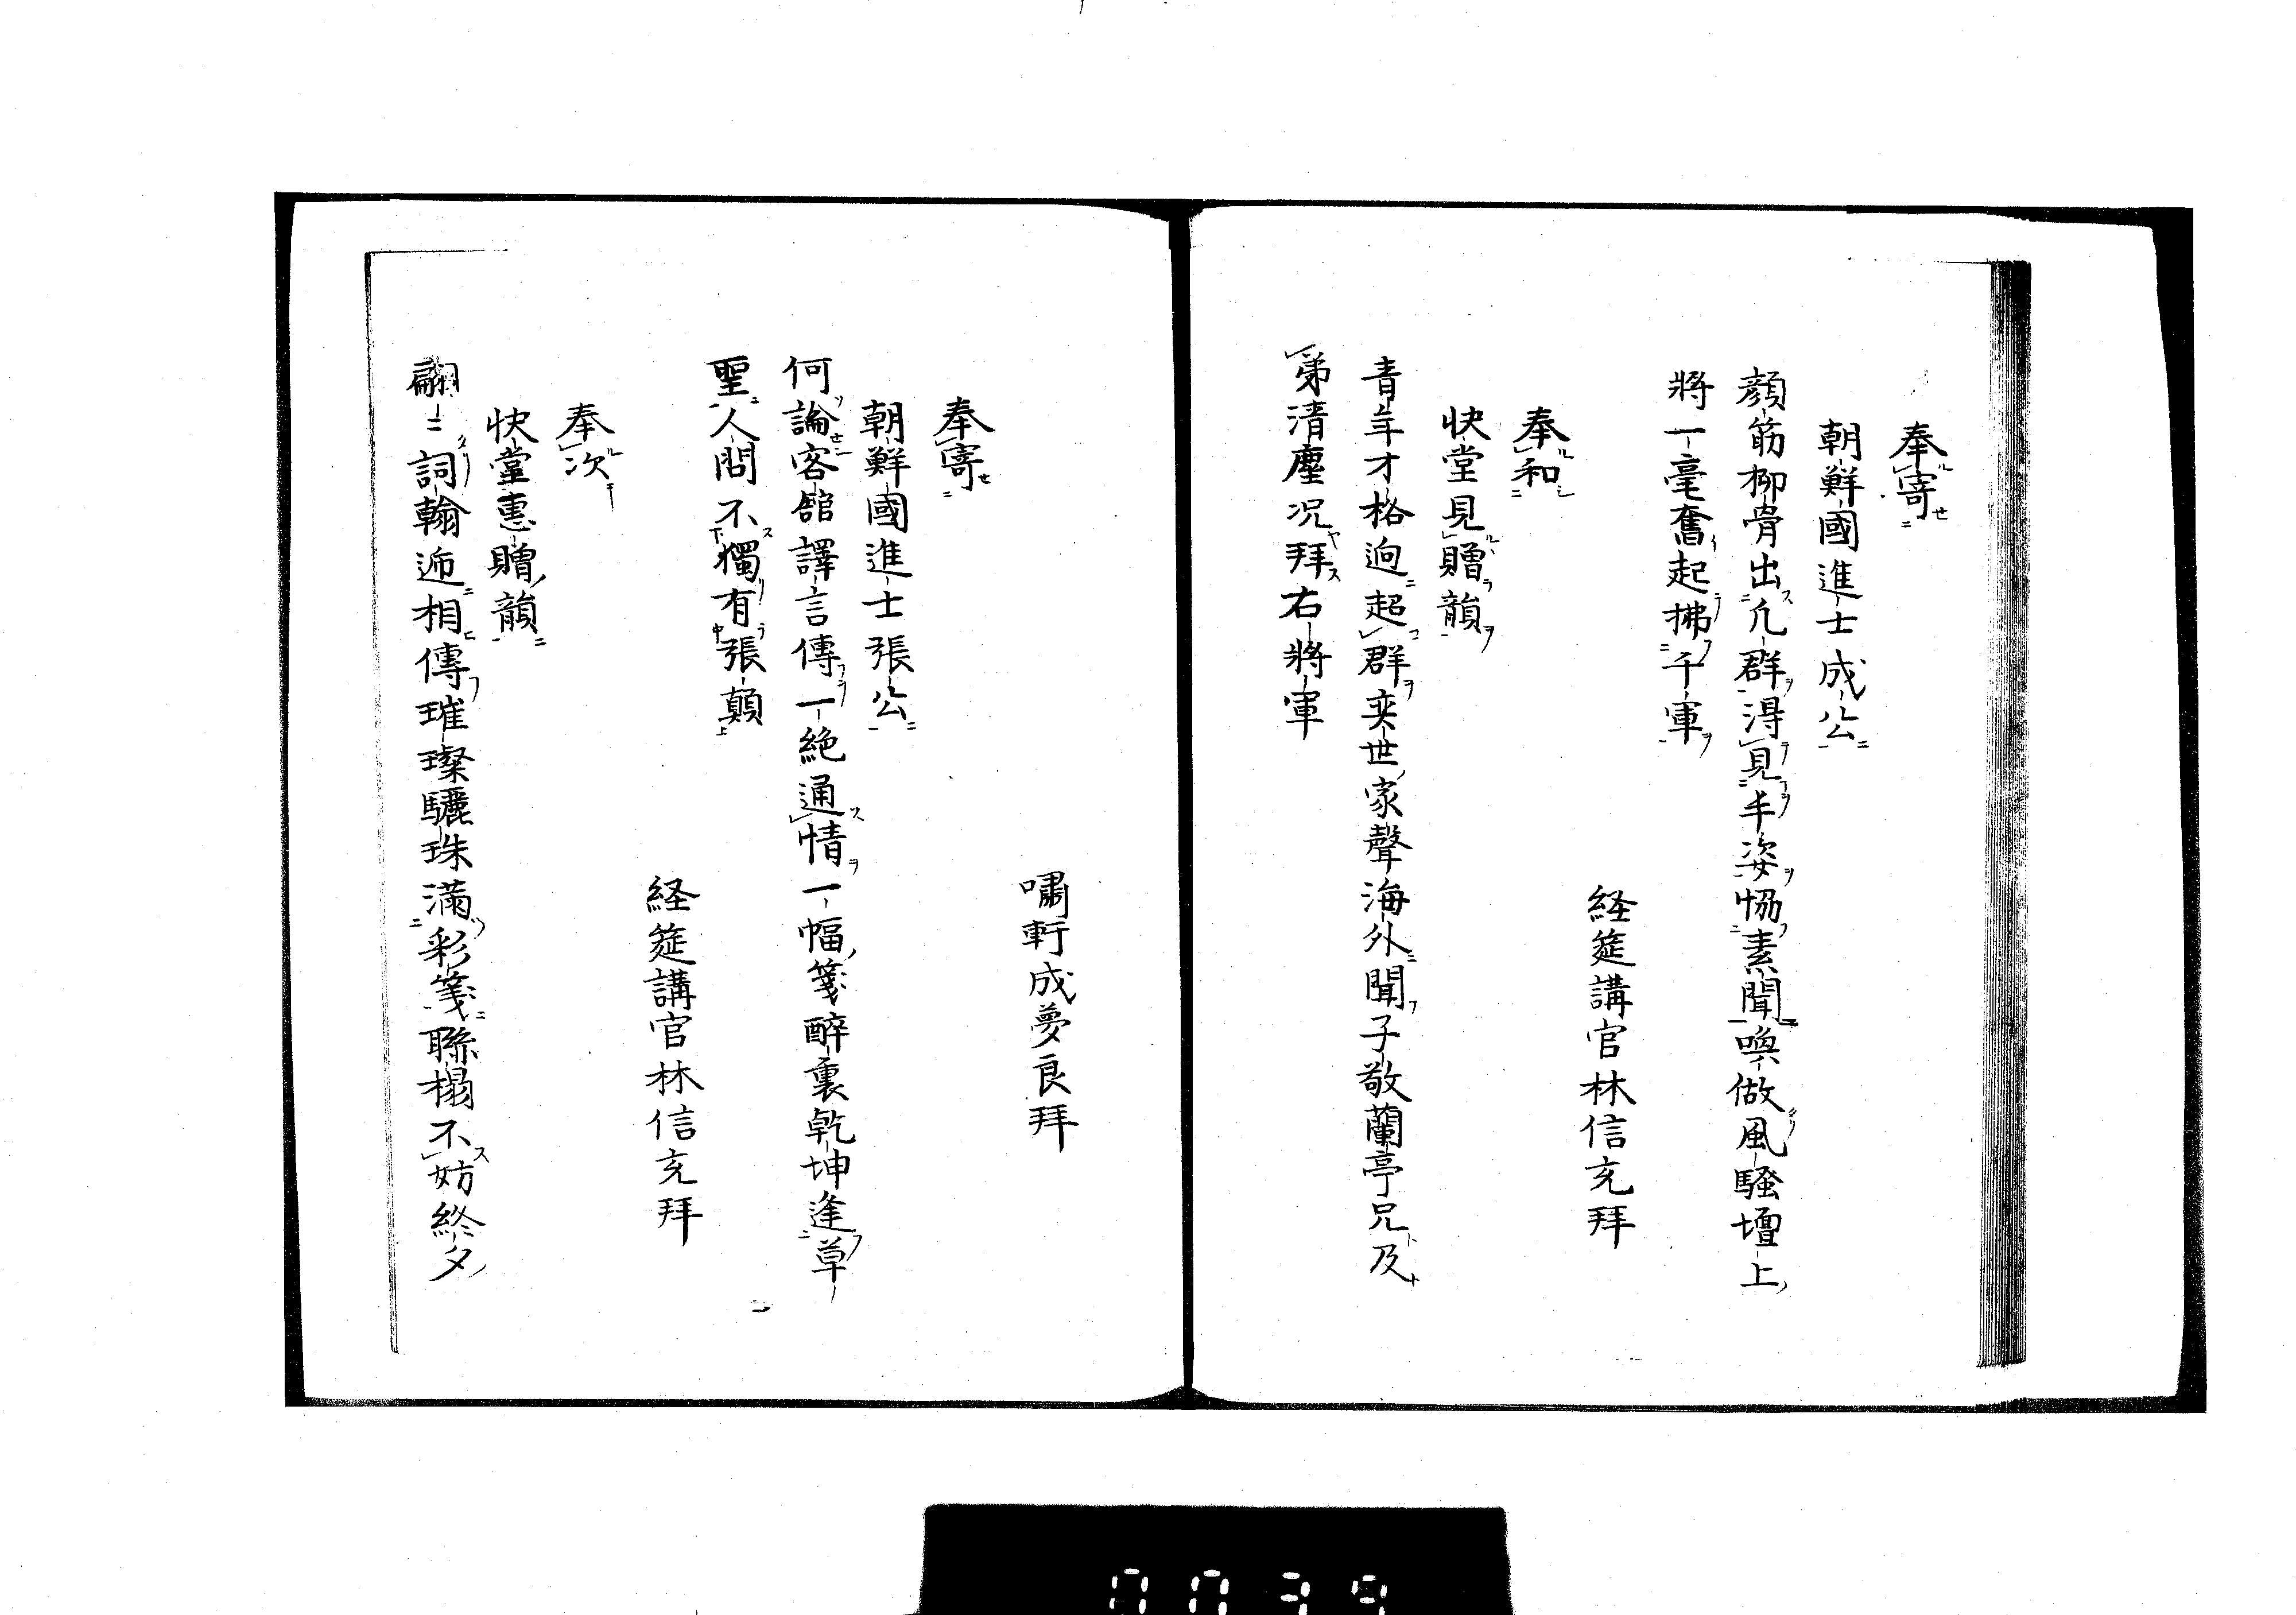 奉寄
朝鮮國進士成公
顔筋柳骨出凢群得見半姿恊素聞喚做風騷壇上
將一毫奮起拂千軍
経筵講官林信充拜
奉和
快堂見贈韻
青年才格逈超群奕世家聲海外聞子敬蘭亭兄及
弟清塵况拜右將軍
嘯軒成夢良拜
奉寄
朝鮮國進士張公
何論客舘譯言傳一絶通情一幅箋醉裏乾坤逢草
聖人間不獨有張顛
経筵講官林信充拜
奉次
快堂惠贈韻
翩〻詞翰逓相傳璀璨驪珠滿彩箋聯榻不妨終夕
0039